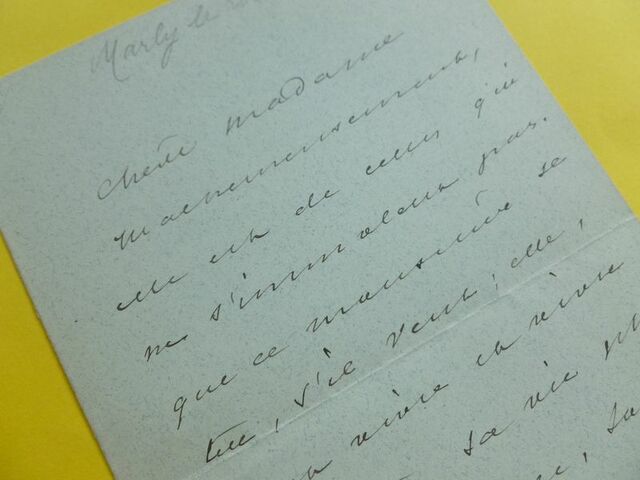 Marly le
Chère madame
Malheureusement,
elle est de celles qui
ne s'immolent pas.
que ce monsieur se
tue, s'il veut; elle,
vivre et vivre
sa vie